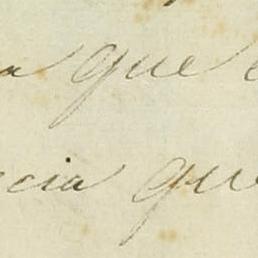 a que
cia que